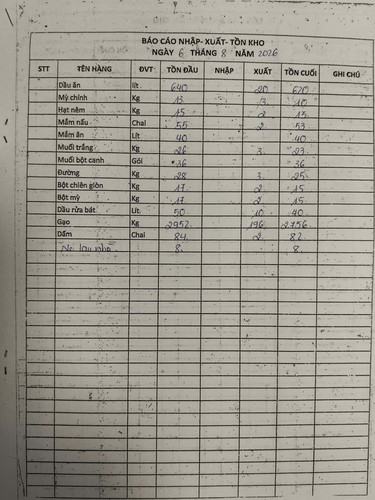 BÁO CÁO NHẬP- XUẤT- TỒN KHO
NGÀY 6 THÁNG 8 NĂM 2026
STT TÊN HÀNG ĐVT TỒN ĐẦU NHẬP XUẤT TỒN CUỐI GHI CHÚ
Dầu ăn lít 640 20 620
Mỳ chính Kg 13 3 10
Hạt nêm Kg 15 2 13
Mắm nấu Chai 55 2 53
Mắm ăn Lít 40 40
Muối trắng Kg 26 3 23
Muối bột canh Gói 36 36
Đường Kg 28 3 25
Bột chiên giòn Kg 17 2 15
Bột mỳ Kg 17 2 15
Dầu rửa bát Lít 50 10 40
Gạo Kg 2952 196 2756
Dấm Chai 84 2 82
lau nhà 8 8